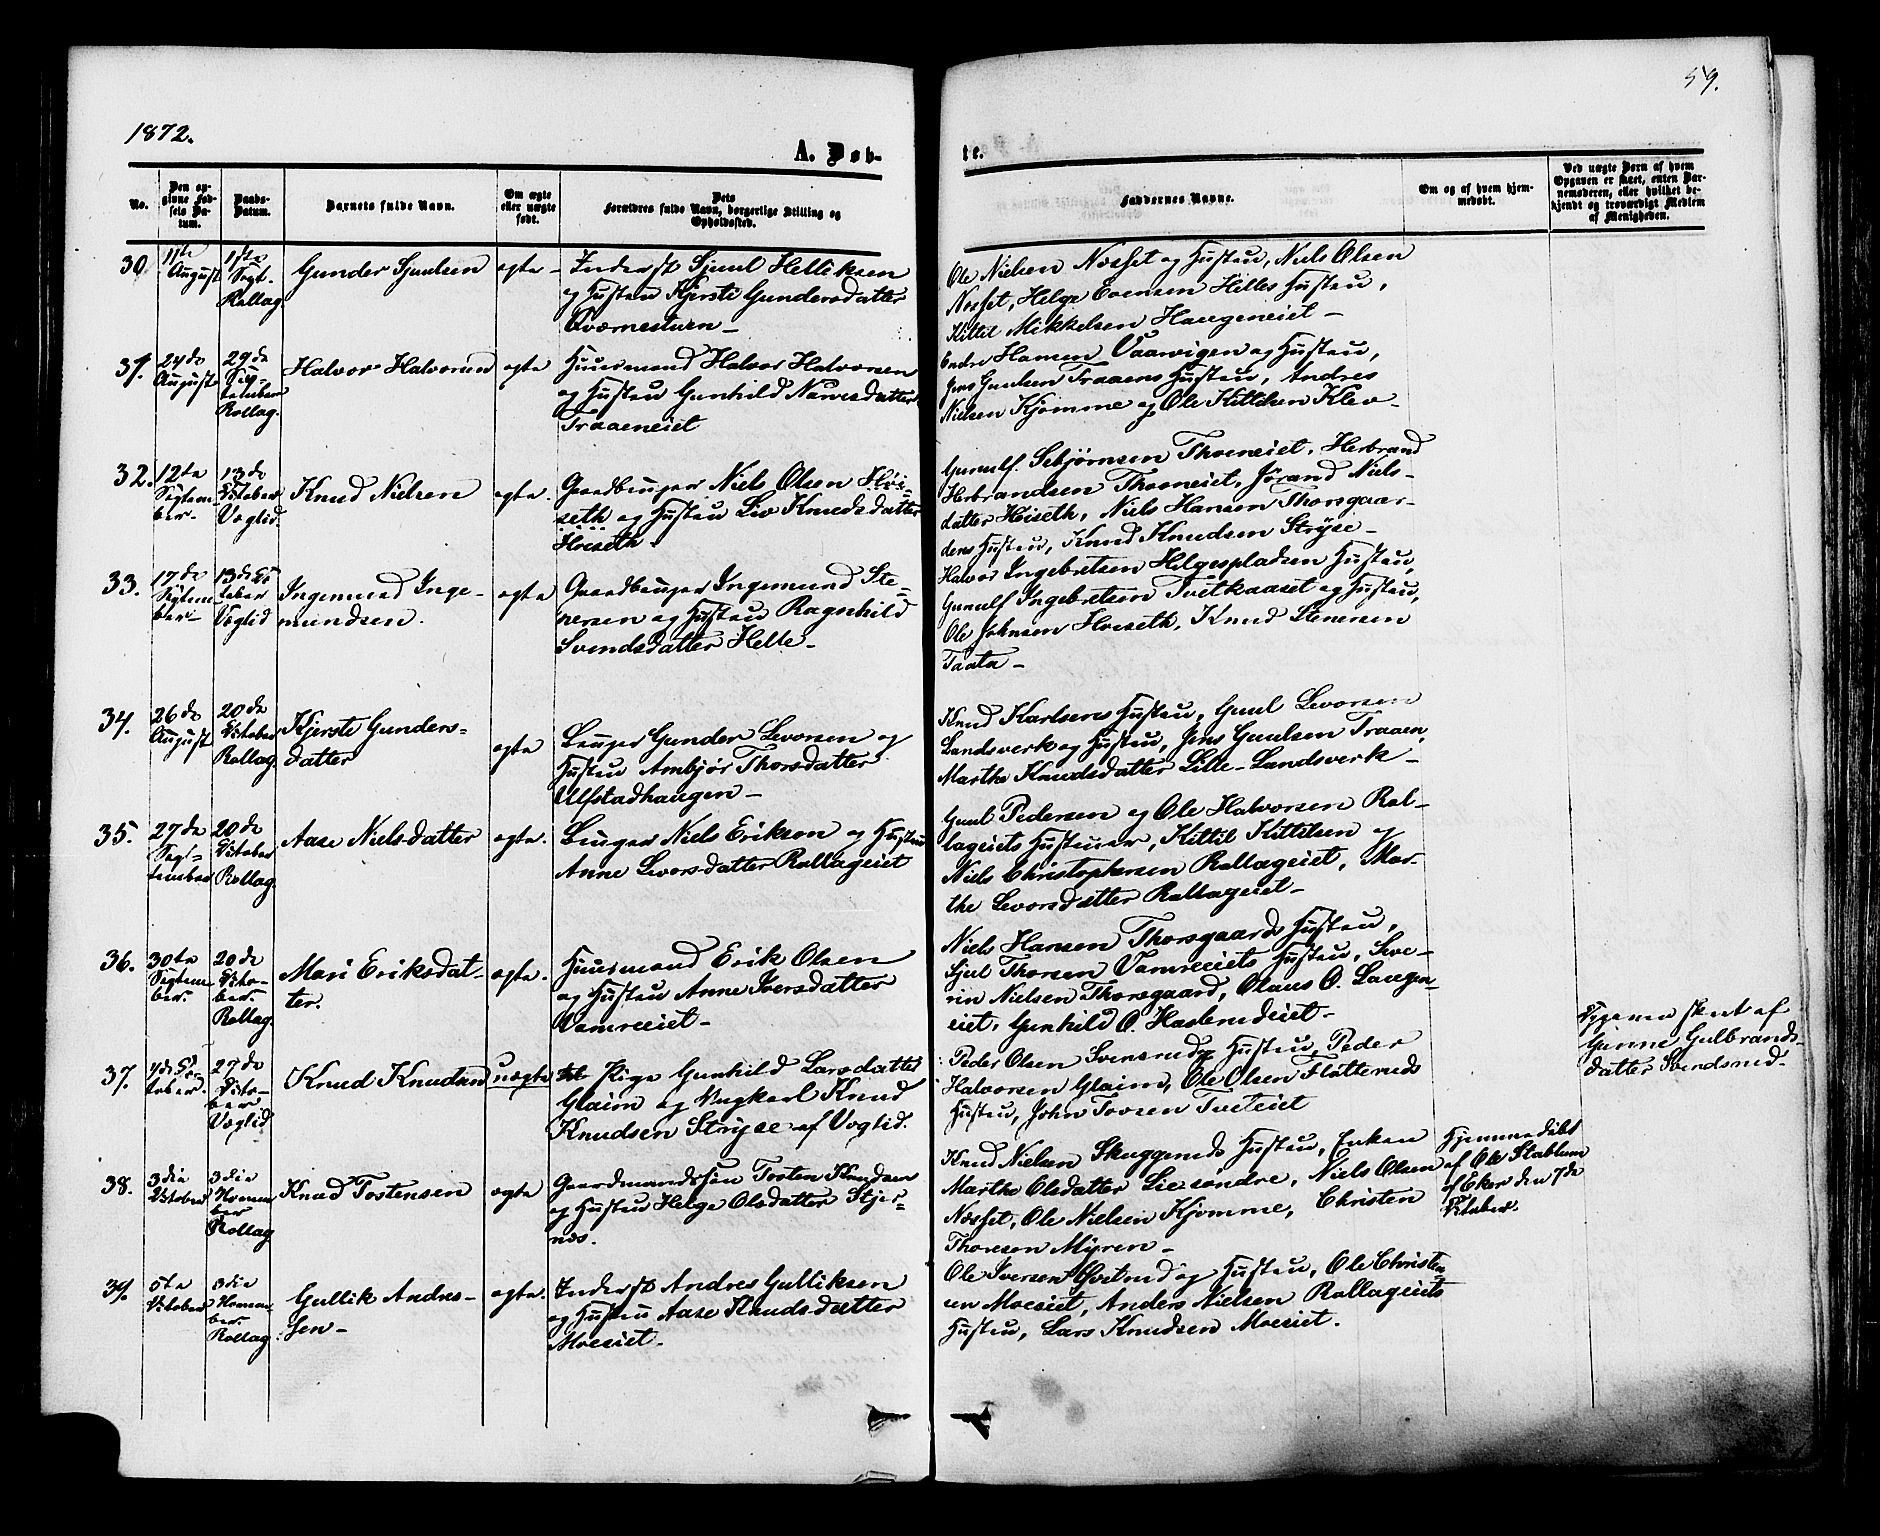 1872.
59.
A. Døb-
te.
No.
Den op-
givne Fød-
sels Da-
tum.
Daabs-
Datum.
Barnets fulde Navn.
Om ægte
eller uægte
født.
Dets
Forældres fulde Navn, borgerlige Stilling og
Opholdssted.
Faddernes Navne.
Om og af hvem hjem-
medøbt.
Ved uægte Børn af hvem
Opgaven er skeet, enten Bar-
nemoderen, eller hvilket be-
kjendt og troværdigt Medlem
af Menigheden.
30.
11te
August
1ste
Sept.
Rollag.
Gunder Sjulsen
ægte
Inderst Sjuul Helliksen
og Hustru Kjersti Gundersdatter
Qværnesturn
Ole Nielsen Næsset og Hustru, Niels Olsen
Næsset, Helge Evensen Helles Hustru,
Kittil Mikkelsen Haugeneiet
31.
24de
August
29de
Sep-
tember
Rollag.
Halvor Halvorsen
ægte
Huusmand Halvor Halvorsen
og Hustru Gunhild Narvesdatter
Traaeneiet
Endre Hansen Vaarvigen og Hustru,
Jens Guulsen Traaens Hustru, Andres
Nielsen Kjømme og Ole Kittilsen Klev
32.
12te
Septem-
ber
13de
Oktober
Væglid.
Knud Nielsen
ægte.
Gaardbruger Niels Olsen Høi-
seth og Hustru Liv Knudsdatter
Høiseth
Gunulf Sebjørnsen Thoeneiet, Herbrand
Herbrandsen Thoeneiet, Jørand Niels-
datter Høiseth, Niels Hansen Thorsgaar-
dens Hustru, Knud Knudsen Stryse
33.
17de
Septem-
ber
13de Ok-
tober
Væglid
Ingemund Inge-
mundsen.
ægte
Gaardbruger Ingemund Ste-
nersen og Hustru Ragnhild
Svendsdatter Helle
Halvor Ingebretsen Helgespladsen Hustru,
Gunulf Ingebretsen Tveitkaaset og Hustru,
Ole Johnsen Høiseth, Knud Stenersen
Taata
34.
26de
August
20de
Oktober
Rollag.
Kjersti Gunders-
datter
ægte
Bruger Gunder Levorsen og
Hustru Ambjør Thorsdatter
Ulfstadhaugen
Knud Karlsens Hustru, Guul Levorsen
Landsverk og Hustru, Jens Guulsen Traaen,
Marthe Knudsdatter Lille-Landsverk
35.
27de
Sept-
tember
20de
Oktober
Rollag.
Aase Nielsdatter
ægte.
Bruger Niels Erikson og Hustru
Anne Levorsdatter Rollageiet
Guul Pedersen og Ole Halvorsen Rol-
lageiets Hustruer, Kittil Kittilsen og
Niels Christophersen Rollageiet, Mar-
the Levorsdatter Rollageiet
36.
30te
Septem-
ber.
20de
Okto-
ber.
Rollag.
Mari Eriksdat-
ter.
ægte.
Huusmand Erik Olsen
og Hustru Anne Iversdatter
Vamreeiet
Niels Hansen Thorsgaards Hustru,
Sjul Thorsen Vamreeiets Hustru, Seve-
rin Nielsen Thorsgaard, Olaus O. Laugen-
eiet, Gunhild O. Haslerudeiet
37.
7de Ok-
tober.
27de
Okto-
ber
Væglid
Knud Knudsen
uægte
Pige Gunhild Larsdatter
Glaim og Ungkarl Knud
Knudsen Stryse af Væglid.
Peder Olsen Svensrud og Hustru, Peder
Halvorsen Glaim, Ole Olsen Fløtteruds
Hustru, John Tovsen Tveteiet
Opgaven skeet af
Gunne Gulbrands-
datter Svendsrud
38.
3die
Oktober
3die
Novem-
ber
Rollag
Knud Tostensen
ægte
Gaardmandssøn Tosten Knudsen
og Hustru Helge Olsdatter Stjer-
næs.
Knud Nielsen Skuggeruds Hustru, Enken
Marthe Olsdatter Lie søndre, Niels Olsen
Næsset, Ole Nielsen Kjømme, Christen
Thoresen Myren
Hjemmedøbt
af Ole Stablum
af Eker den 7de
Oktober.
39.
5te
Oktober
3die
Novem-
ber.
Rollag
Gullik Andres-
sen
ægte.
Inderst Andres Gulliksen
og Hustru Aase Knudsdatter
Moeeiet.
Ole Iversen Qvitrud og Hustru, Ole Christen-
sen Moeeiet, Anders Nielsen Rollageiets
Hustru, Lars Knudsen Moeeiet.